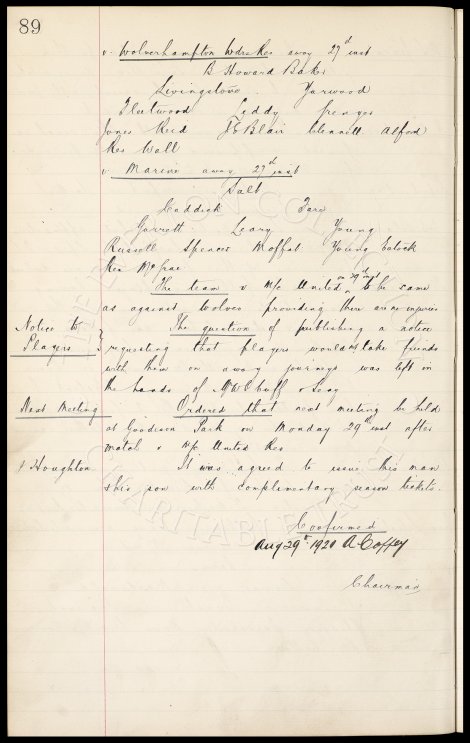 89
v. Wolverhampton Wdrs Res away 27th inst
B Howard Baker
Livingstone Yarwood
Fleetwood Leddy Grenyer
Jones Reid J E Blair Clennell Alford
Res Wall
v. Marine away 27th inst
Salt
Caddick Tare
Garrett Leary Young
Russell Spencer Moffat Young
Res McGrae
The team v M/c United on 29th inst to be same
as against Wolves providing there are no injuries
Notice to
Players
The question of publishing a notice
requesting that players would not take friends
with them on away journeys was left in
the hands of W C Cuff
Next Meeting
Ordered that next meeting be held
at Goodison Park on Monday 29th inst after
match v M/c United Res
J Houghton
It was agreed to issue this man
& his son with complimentary season tickets.
Confirmed
Aug 29th 1921 A Coffey
Chairman